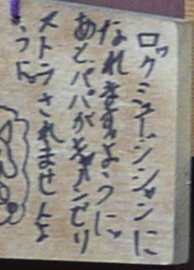 ロックミュージシャンに
なれますように。
あとパパがギャンビリ
ストラされませんよ
うに。